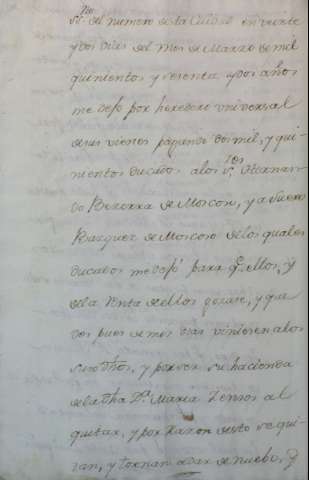 no
ss. del numero de la Ciudad en veinte
y dos dias del mes de Marzo de mil
quinientos y sesenta y dos años
me dejo por heredero vniversal
de sus vienes pagando dos mil, y qui-
nientos ducados a los ss.res Hernan-
do Bezerra de Moscoso, y a Suero
Bazquez de Moscoso de los quales
ducados me dejó para q.e ellos, y
de la renta de ellos gozase, y que
des pues de mis dias viniesen a los
suso dhos, y por ser su hacienda
de la dha D.a Maria Zensos al
quitar, y por razon de esto se qui-
tan, y tornan a dar de nuebo, y